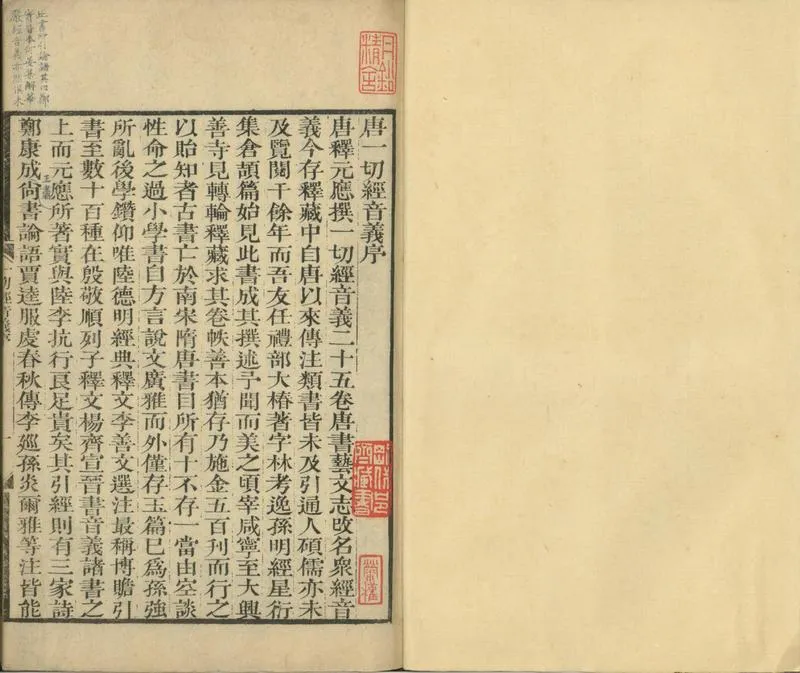 唐一切經音義序
唐釋元應撰一切經音義二十五卷唐書藝文志改名衆經音
義今存釋藏中自唐以來傳注類書皆未及引通人碩儒亦未
及覽閱千餘年而吾友任禮部大椿著字林考逸孫明經星衍
集倉頡篇始見此書成其撰述予聞而美之頃宰咸寧至大興
善寺見轉輪釋藏求其卷帙善本猶存乃施金五百刊而行之
以貽知者古書亡於南宋隋唐書目所有十不存一當由空談
性命之過小學書自方言說文廣雅而外僅存玉篇已爲孫強
所亂後學鑽仰唯陸德明經典釋文李善文選注最稱博贍引
書至數十百種在殷敬順列子釋文楊齊宣晉書音義諸書之
上而元應所著實與陸李抗行良足貴矣其引經則有三家詩
鄭康成尙書論語賈逵服虔春秋傳李巡孫炎爾雅等注皆能
王肅
一切經音義序
一